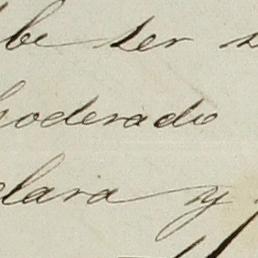 be ser
poderado
clara y